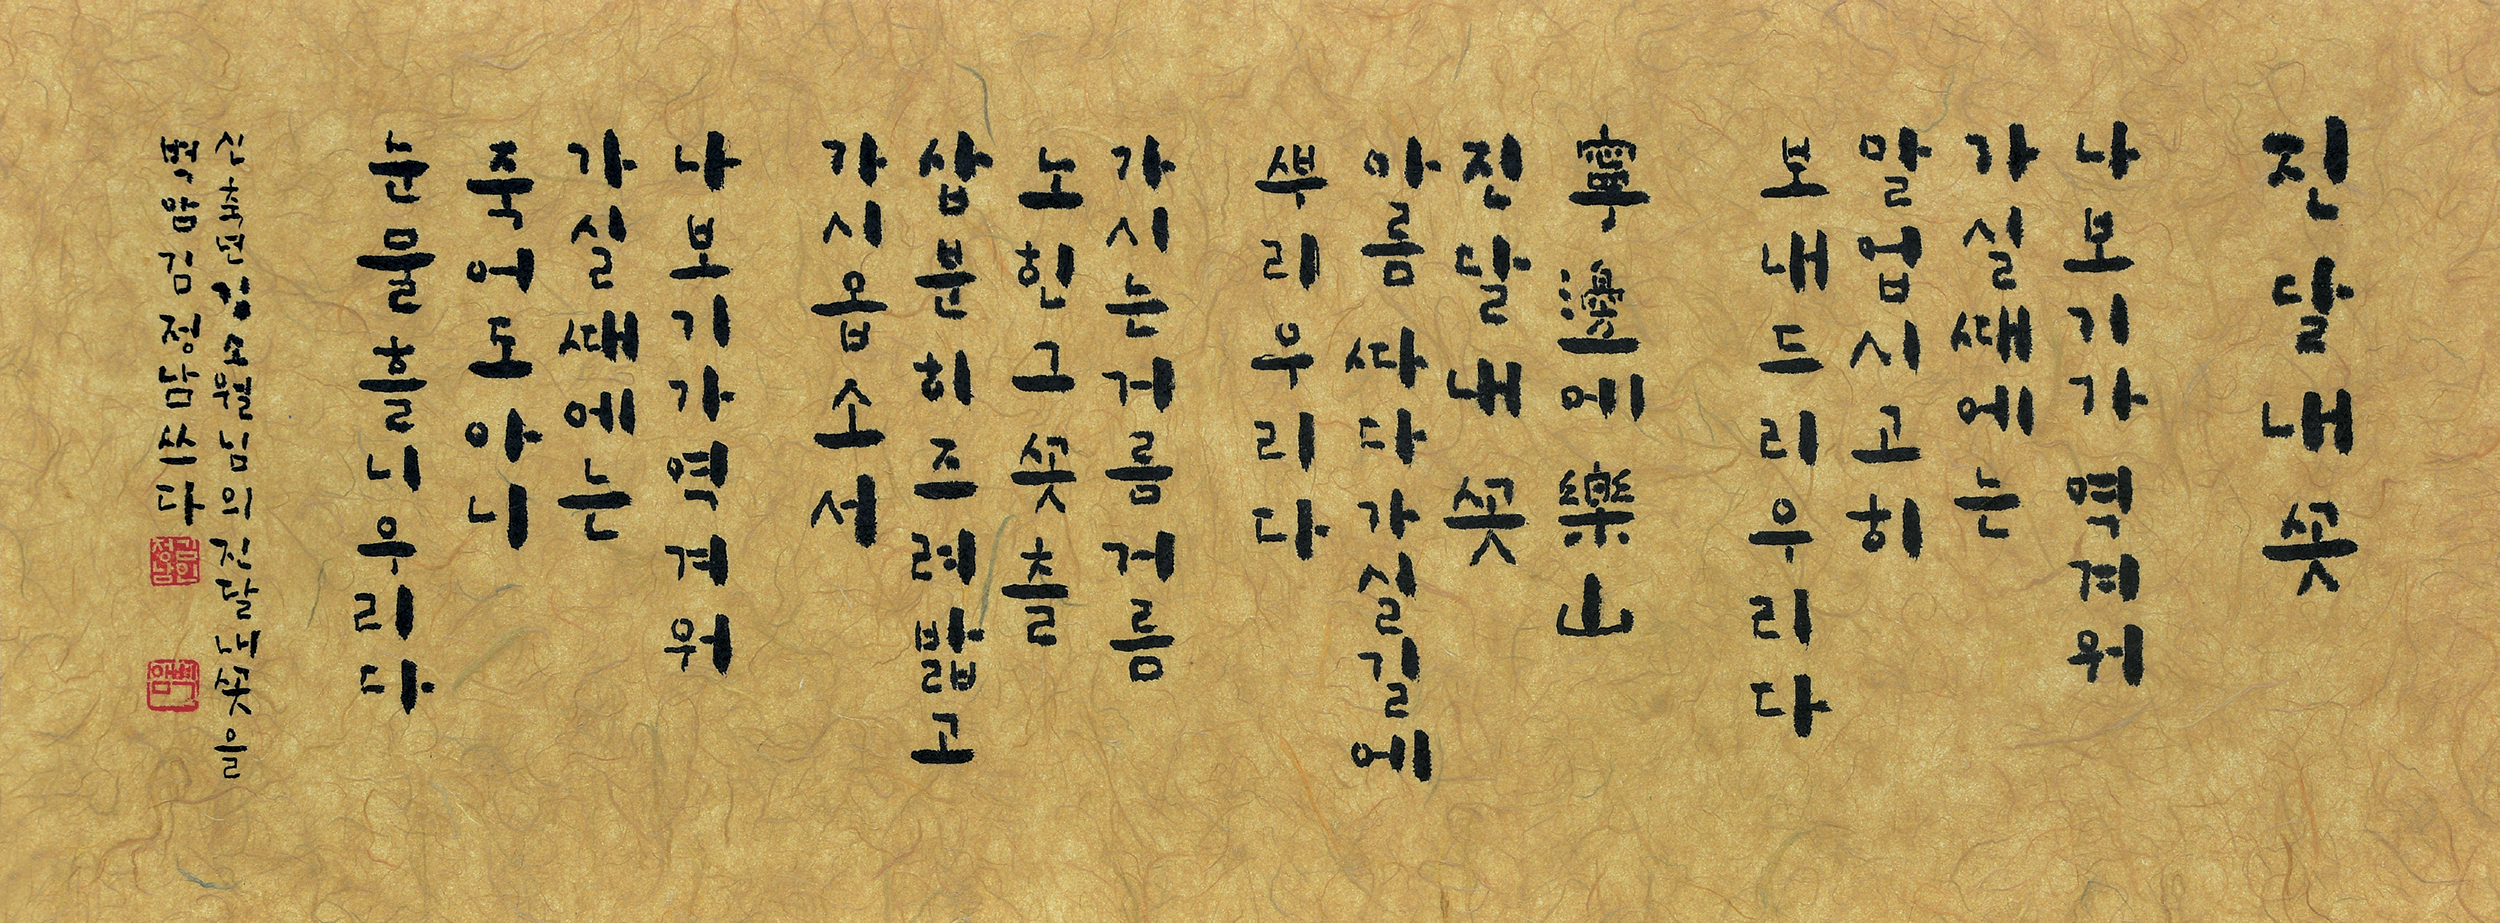 진달내ᄭᅩᆺ
나보기가역겨워
가실ᄯᅢ에는
말업시고히
보내드리우리다
寧邊에樂山
진달내ᄭᅩᆺ
아름ᄯᅡ다가실길에
ᄲᅮ리우리다
가시는거름거름
노힌그ᄭᅩᆺ츨
삽분히즈려밟고
가시옵소서
나보기가역겨워
가실ᄯᅢ에는
죽어도아니
눈물흘니우리다
신축년김소월님의진달내ᄭᅩᆺ을
벽암김정남쓰다